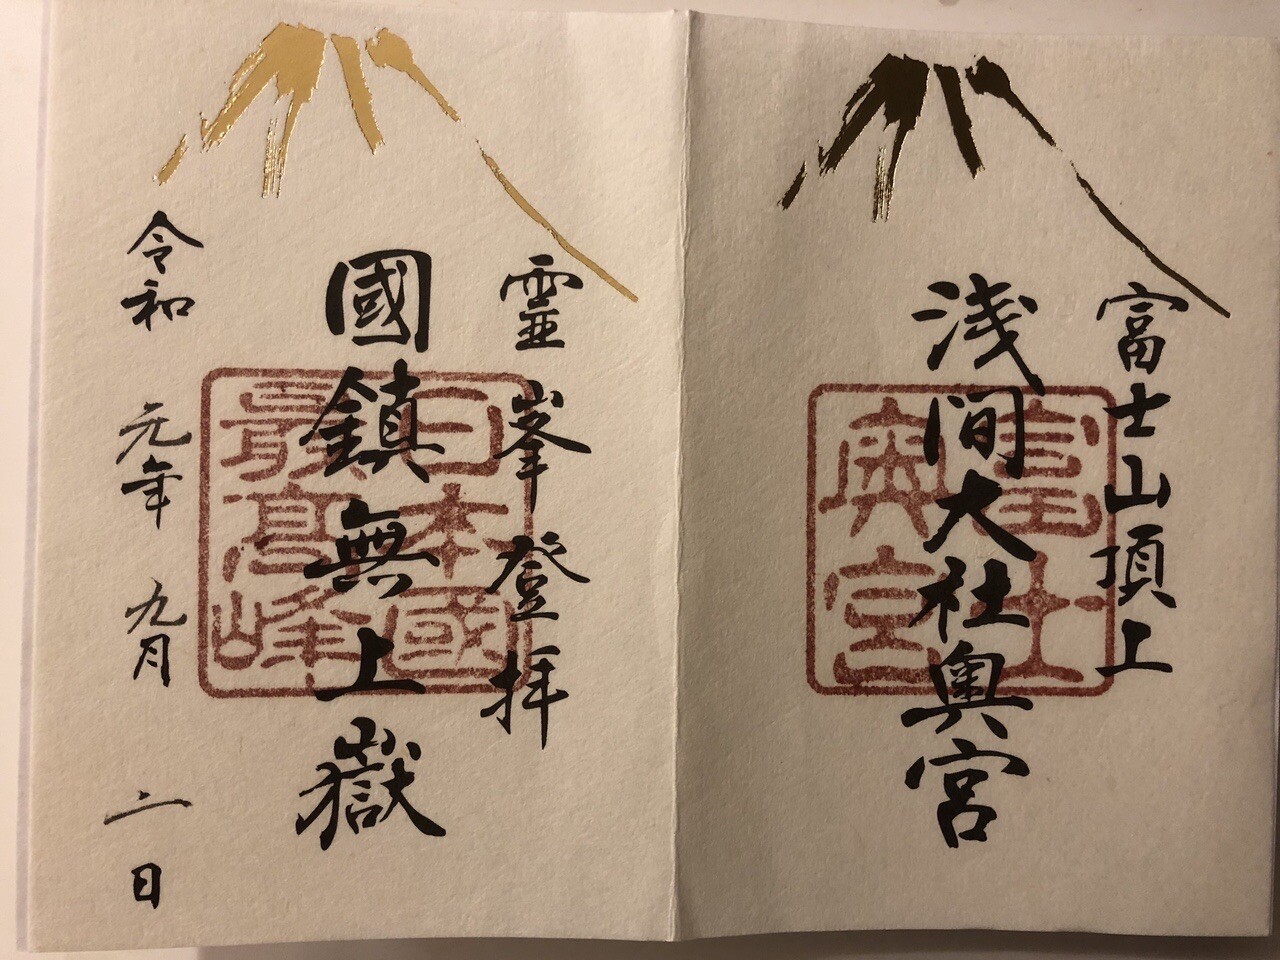 富士山頂上
浅間大社奥宮
富士
奥宮
霊峯登拝
國鎮無上嶽
日本國
最高峰
令和元年九月二日